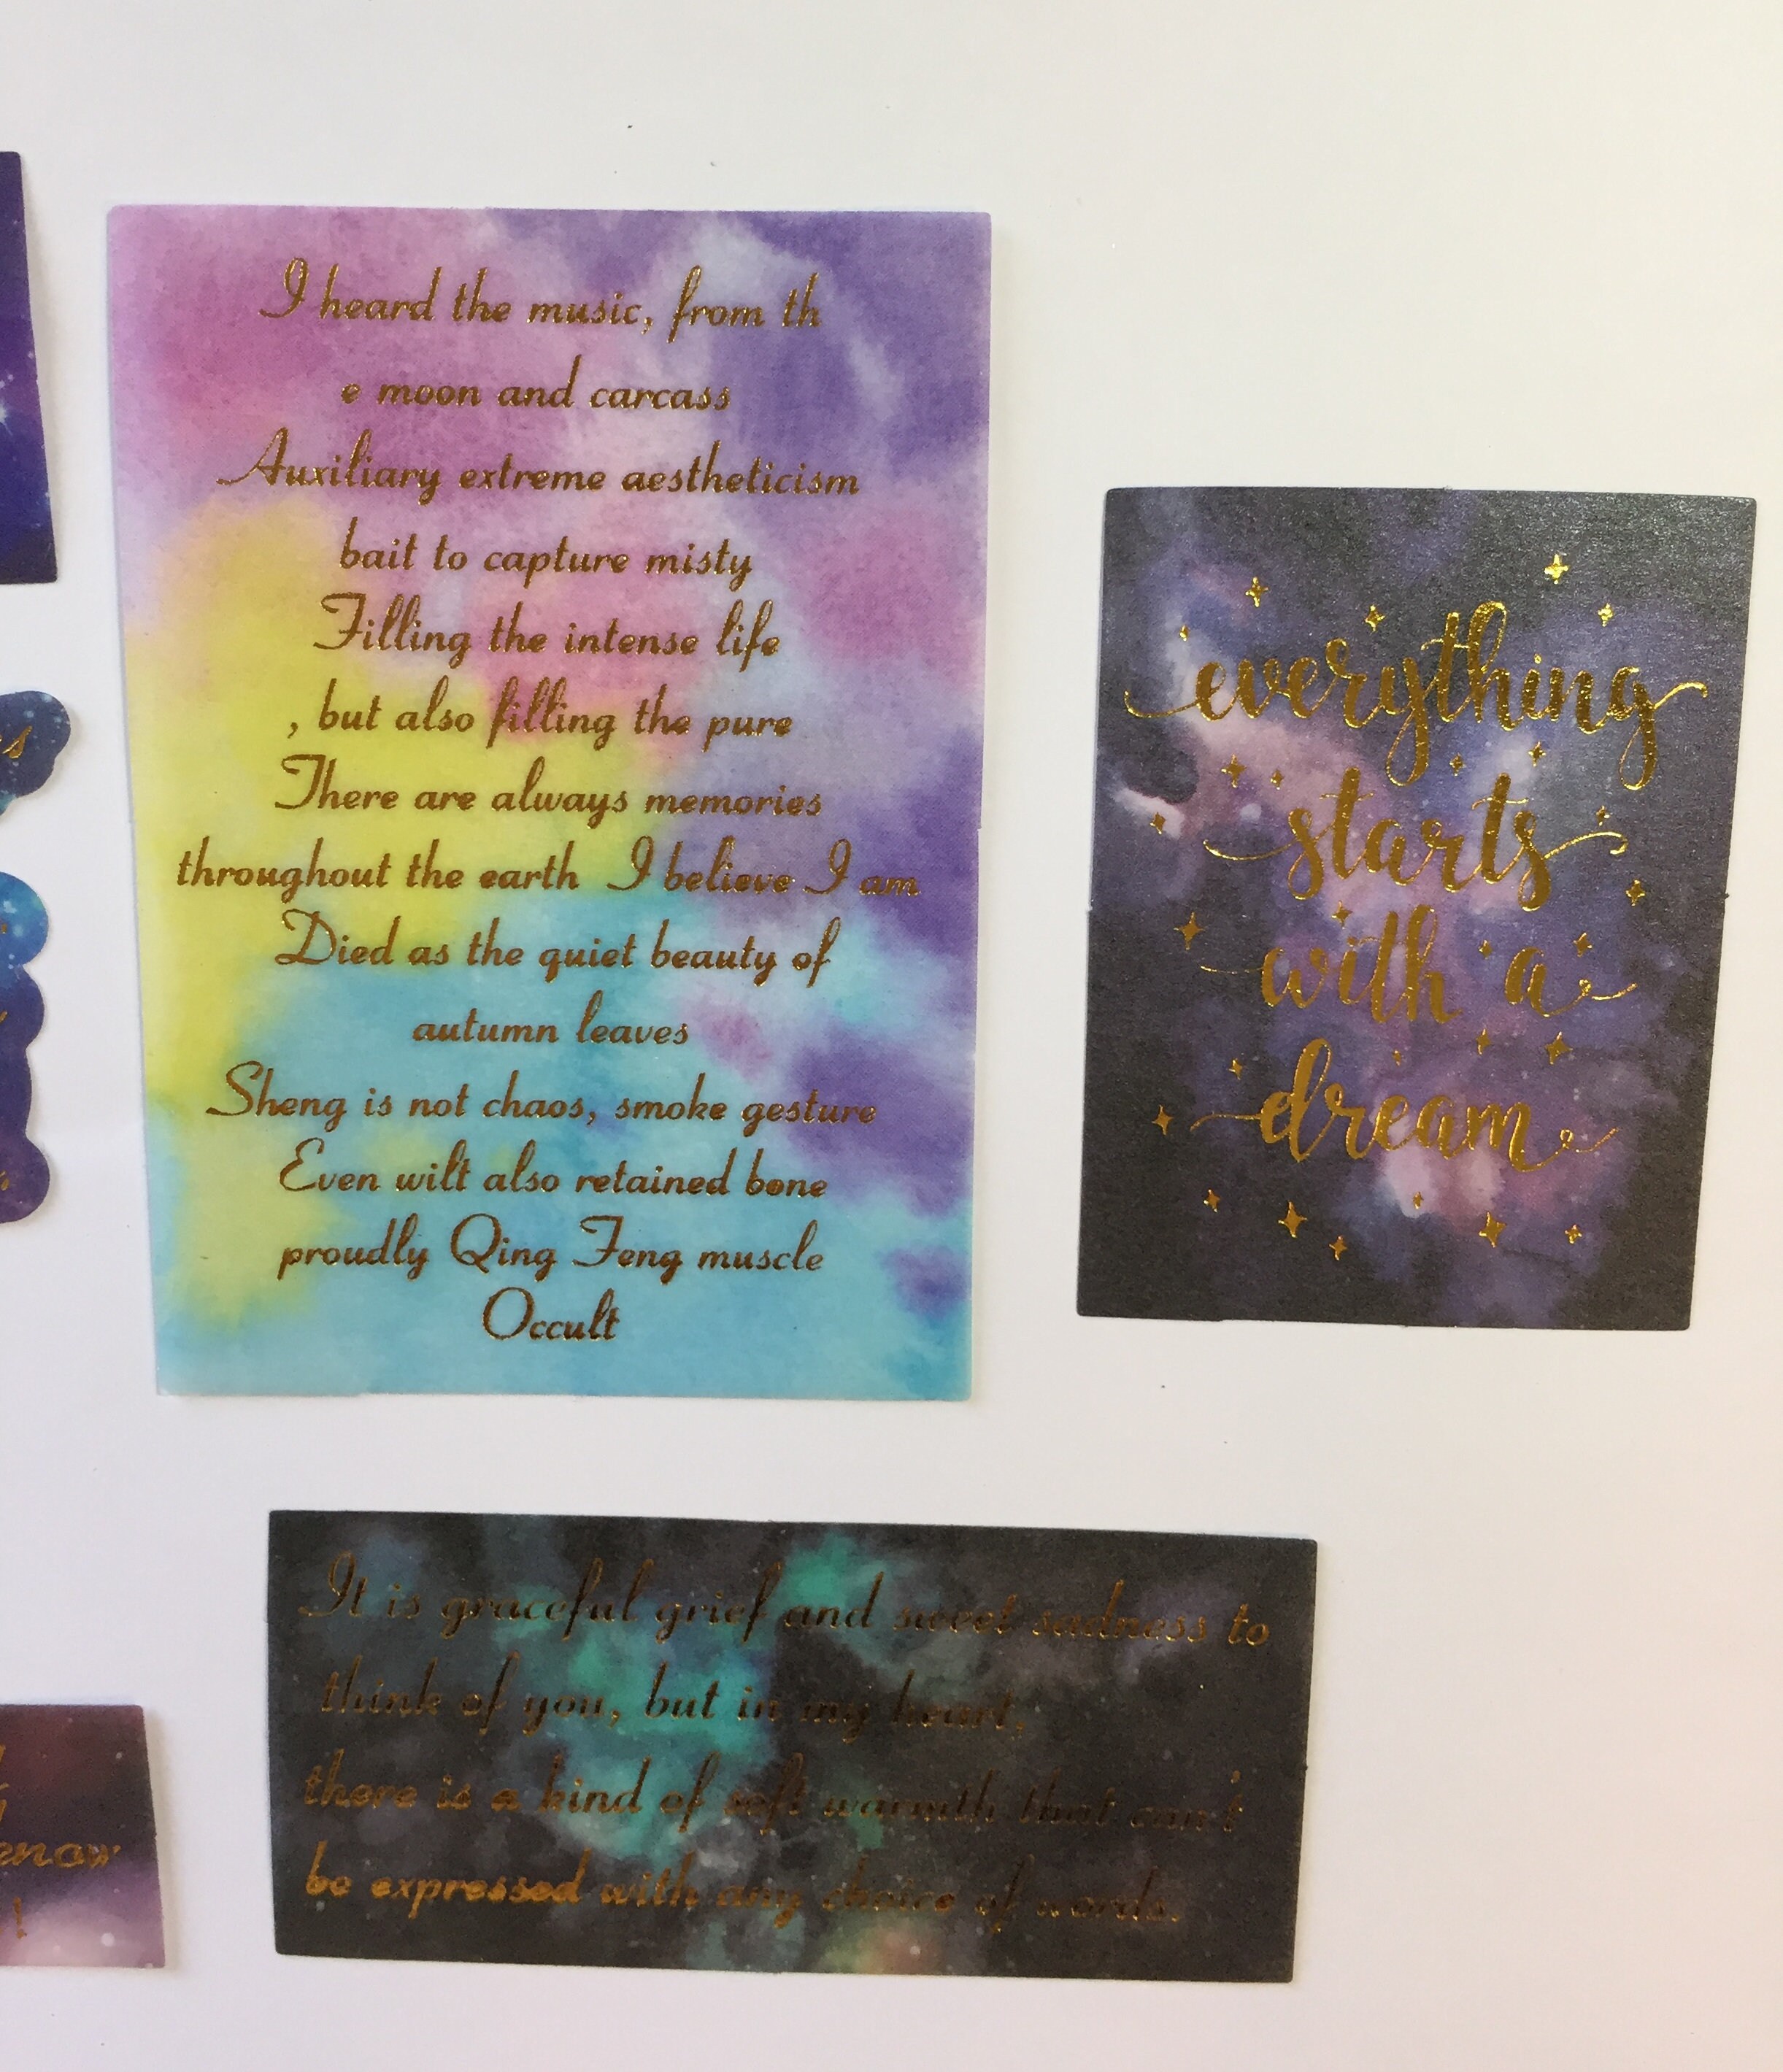 I heard the music, from th
e moon and carcass
Auxiliary extreme aestheticism
bait to capture misty
Filling the intense life
, but also filling the pure
There are always memories
throughout the earth I believe I am
Died as the quiet beauty of
autumn leaves
Sheng is not chaos, smoke gesture
Even wilt also retained bone
proudly Qing Feng muscle
Occult
everything
starts
with a
dream
It is graceful grief and sweet sadness to
think of you, but in my heart,
there is a kind of soft warmth that can't
be expressed with any choice of words.